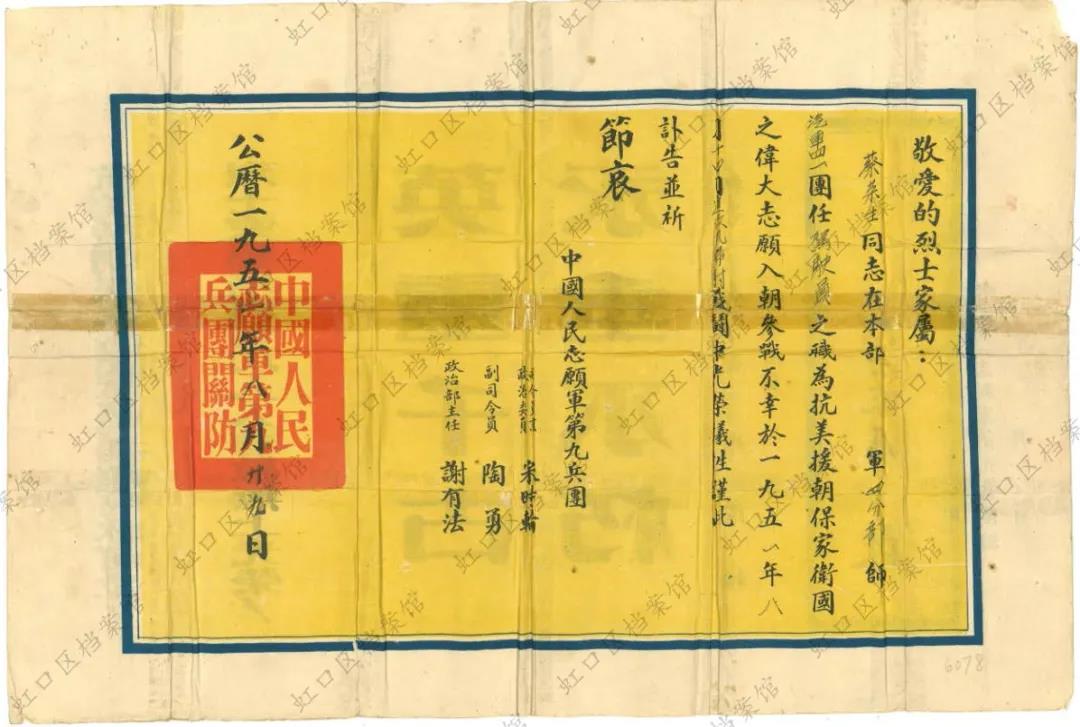 敬愛的烈士家屬：
蔡朵生同志在本部 軍四分部師
汽車四一團任駕駛員之職為抗美援朝保家衛國
之偉大志願入朝參戰不幸於一九五一年八
月十四日 村戰鬪中光榮犧牲謹此
訃告並祈
節哀
中國人民志願軍第九兵團
司令員兼
政治委員 宋時輪
副司令員 陶勇
政治部主任 謝有法
公曆一九五一年八月廿九日
中國人民
志願軍第九
兵團關防
6078
虹口区档案馆